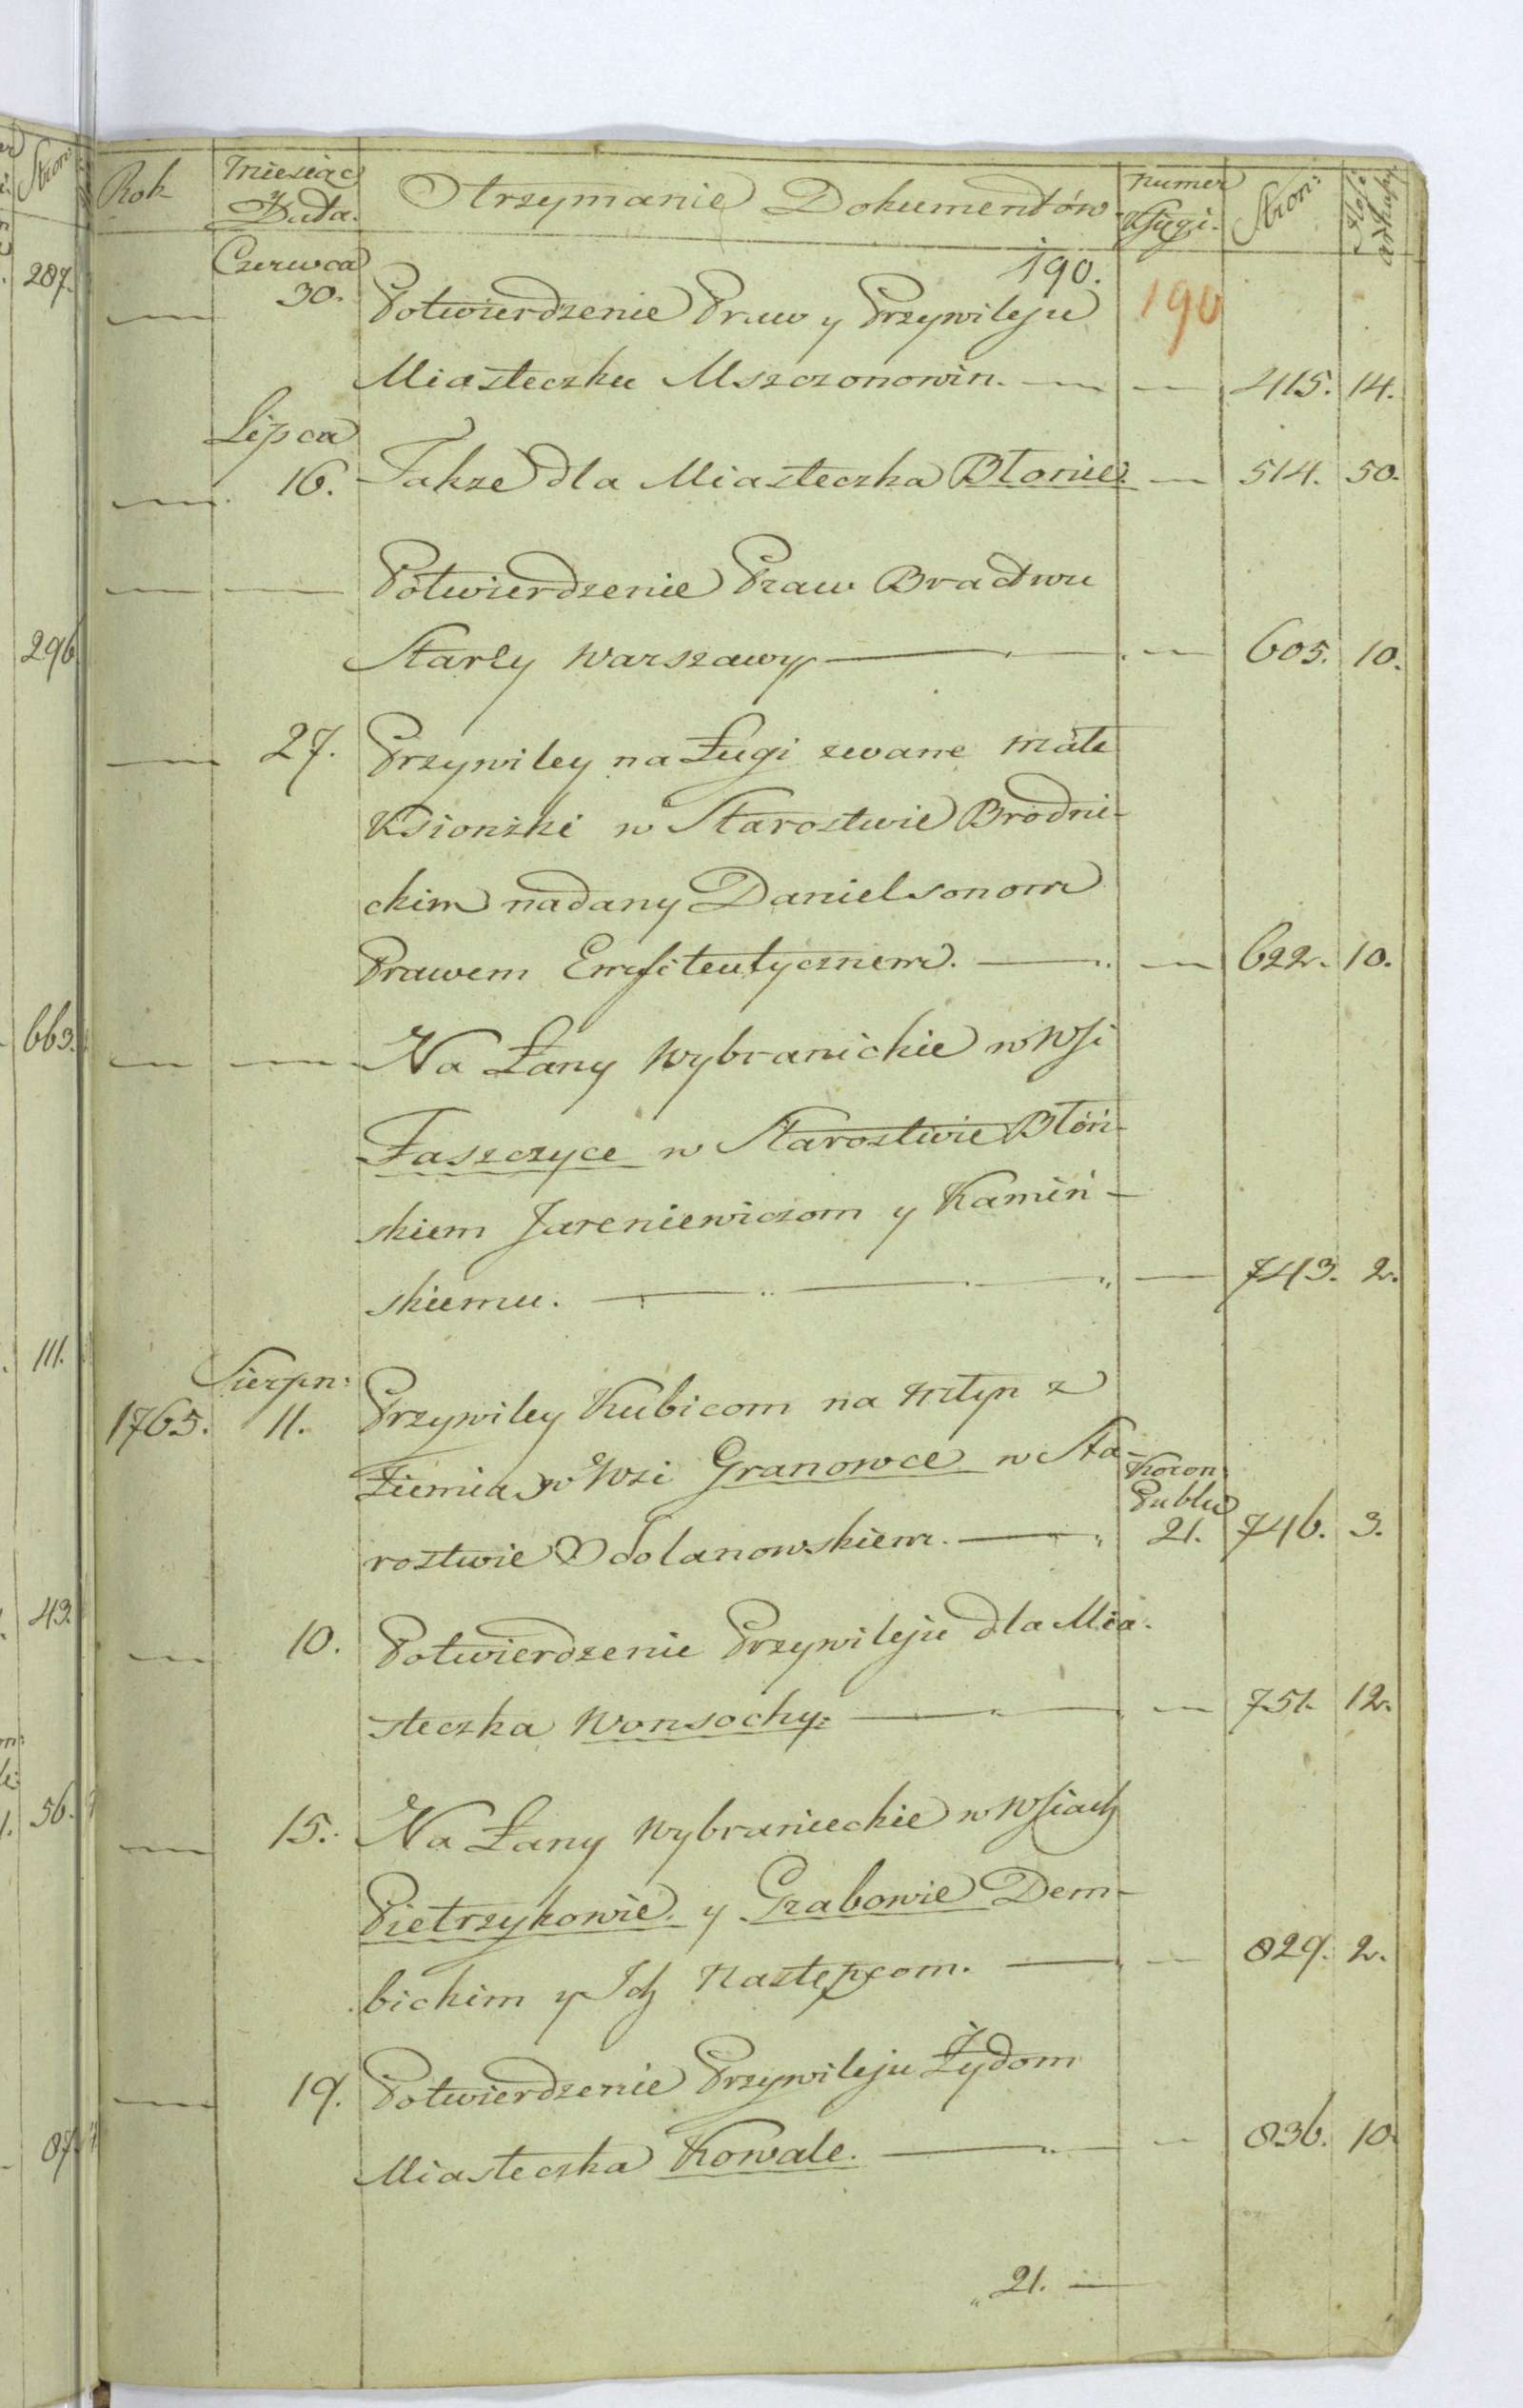 Rok Miesiąc Otrzymanie Dokumentów numer Stron:
Data. Ksiągi.
Czerwca 190.
30. Potwierdzenie Praw y Przywileju 190
Miasteczku Mszczonowin. — — 415. 14.
Lipca
— 16. Takze dla Miasteczka Błonie. — 514. 50.
— — Potwierdzenie Praw Bractwu
Starey Warszawy — — 605. 10.
— 27. Przywiley na Ługi zwane małe
Ksionżki w Starostwie Brodni-
ckim nadany Danielsonom
Prawem Emfiteutycznem. — — 622. 10.
— — Na Łany Wybranickie w Wsi
Faszczyce w Starostwie Błóń-
skiem Jareniewiczom y Kamiń-
skiemu. — — 743. 2.
Sierpn:
1765. 11. Przywiley Kubicom na Młyn z
Ziemią w Wsi Granowce w Sta- Koron:
rostwie Odolanowskiem. — Publi 21. 746. 3.
— 10. Potwierdzenie Przywileju dla Mia-
steczka Wonsochy: — — 751. 12.
— 15. Na Łany Wybranieckie w Wsiach
Pietrzykowie. y Grabowie Dem-
bickim y Ich Następcom. — — 829. 2.
— 19. Potwierdzenie Przywileju Żydom
Miasteczka Kowale. — — 836. 10.
21. —
287.
296
663.
111.
43.
56.
87